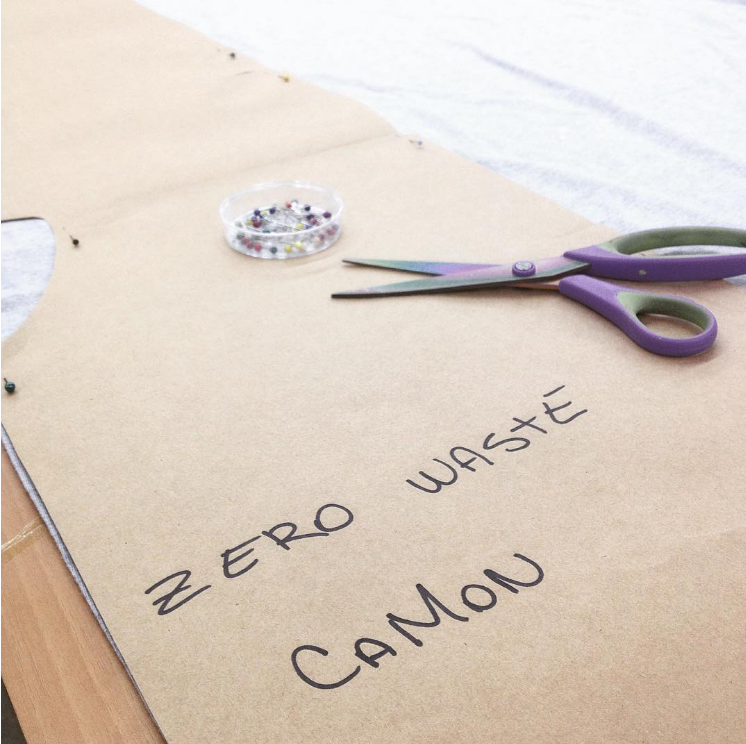 ZERO WASTE
CAMON